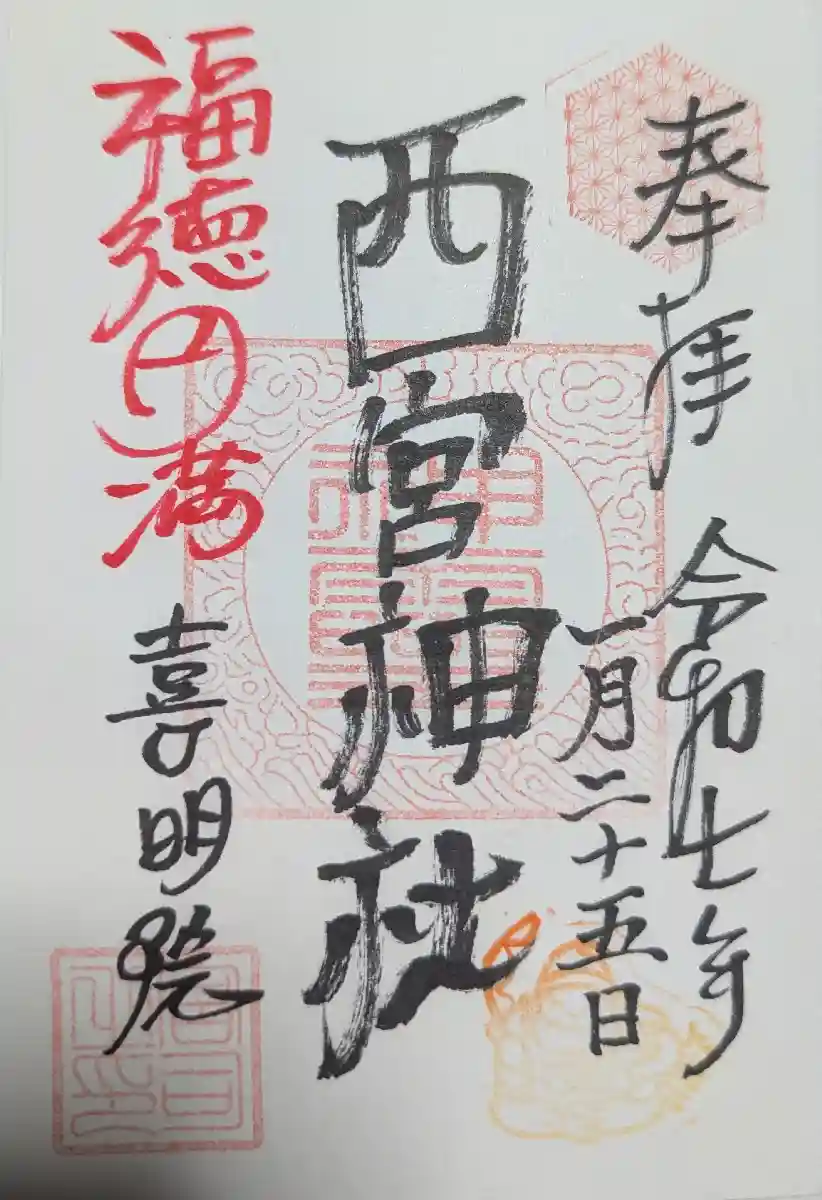 奉拝
令和七年
一月二十五日
西宮神社
福徳円満
喜明発